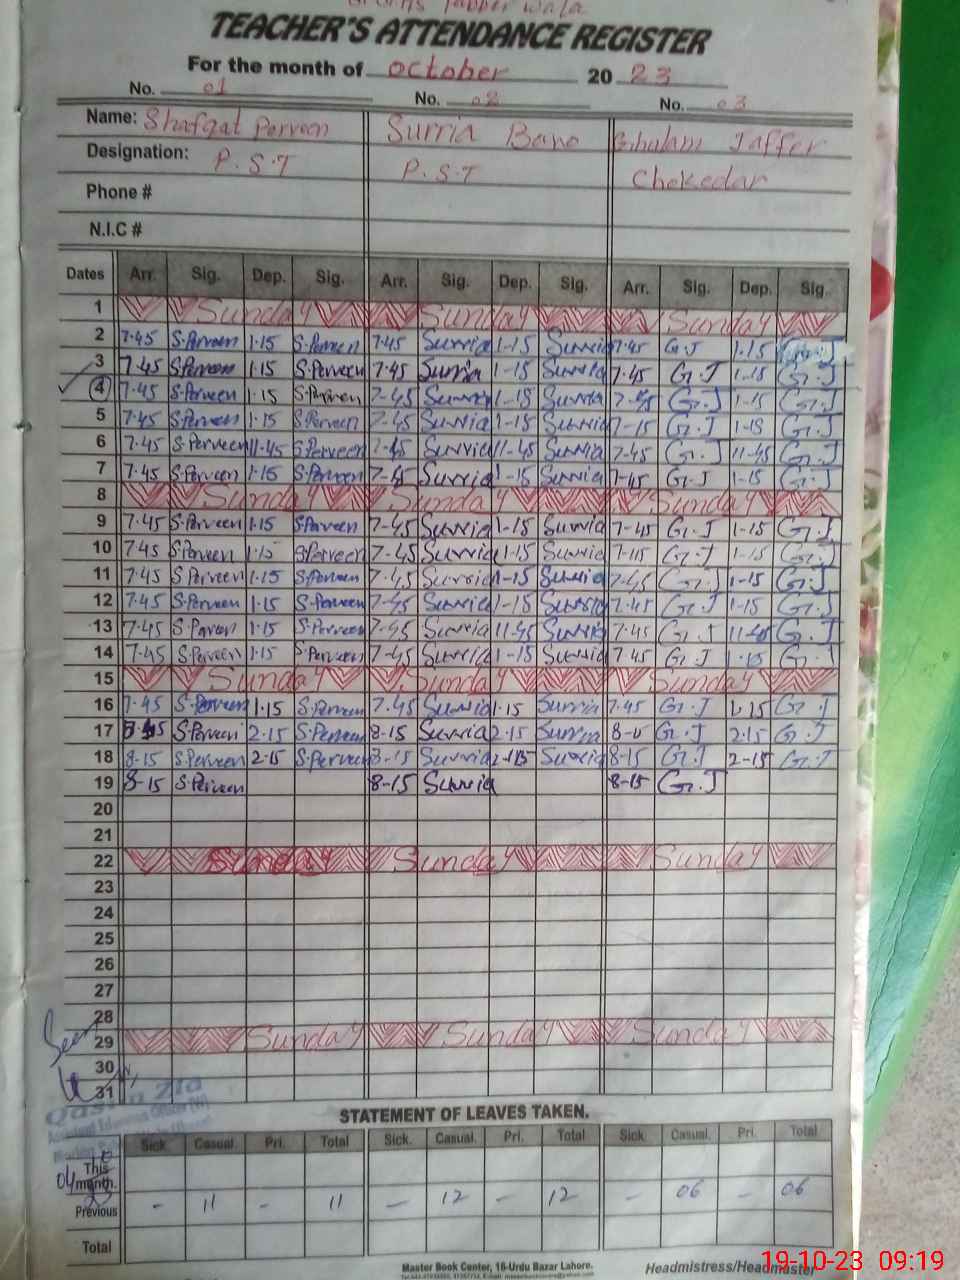 TEACHER'S ATTENDANCE REGISTER
For the month of October 20 23
No. 01 No. 02 No. 03
Name: Shafqat Perveen Surria Bano Ghulam Jaffer
Designation: P.S.T P.S.T Chokedar
Phone #
N.I.C #
Dates Arr. Sig. Dep. Sig. Arr. Sig. Dep. Sig. Arr. Sig. Dep. Sig.
1 Sunday Sunday Sunday
2 7.45 S.Perveen 1.15 S.Perveen 7.45 Surria 1-15 Surria 7.45 G.J 1.15 G.J
3 7.45 S.Perveen 1.15 S.Perveen 7.45 Surria 1-15 Surria 7.45 G.J 1-15 G.J
4 7.45 S.Perveen 1.15 S.Perveen 7-45 Surria 1-15 Surria 7-45 G.J 1-15 G.J
5 7.45 S.Perveen 1.15 S.Perveen 7-45 Surria 1-15 Surria 7-15 G.J 1-15 G.J
6 7.45 S.Perveen 11-45 S.Perveen 7-45 Surria 11-45 Surria 7-45 G.J 11-45 G.J
7 7.45 S.Perveen 1-15 S.Perveen 7-45 Surria 1-15 Surria 7-45 G.J 1-15 G.J
8 Sunday Sunday Sunday
9 7.45 S.Perveen 1.15 S.Perveen 7-45 Surria 1-15 Surria 7-45 G.J 1-15 G.J
10 7.45 S.Perveen 1.15 S.Perveen 7-45 Surria 1-15 Surria G.J 1-15 G.J
11 7.45 S.Perveen 1.15 S.Perveen 7-45 Surria 1-15 Surria 7-45 G.J 1-15 G.J
12 7.45 S.Perveen 1.15 S.Perveen 7-45 Surria 1-15 Surria 7.45 G.J 1-15 G.J
13 7.45 S.Perveen 1.15 S.Perveen 7-45 Surria 11-45 Surria 7.45 G.J 11-45 G.J
14 7.45 S.Perveen 1.15 S.Perveen 7-45 Surria 1-15 Surria 7.45 G.J 1.15 G.J
15 Sunday Sunday Sunday
16 7.45 S.Perveen 1.15 S.Perveen 7.45 Surria 1.15 Surria 7.45 G.J 1.15 G.J
17 S.Perveen 2.15 S.Perveen 8-15 Surria 2.15 Surria G.J 2.15 G.J
18 8-15 S.Perveen 2-15 S.Perveen 8-15 Surria 2-15 Surria 8-15 G.J 2-15 G.J
19 8-15 S.Perveen 8-15 Surria 8-15 G.J
20
21
22 Sunday Sunday Sunday
23
24
25
26
27
28
29 Sunday Sunday Sunday
30
31
Seen
STATEMENT OF LEAVES TAKEN.
Sick. Casual. Pri. Total Sick. Casual. Pri. Total Sick. Casual. Pri. Total
This month.
Previous - 11 - 11 - 12 - 12 - 06 - 06
Total
Master Book Center, 16-Urdu Bazar Lahore.
Headmistress/Headmaster
19-10-23 09:19